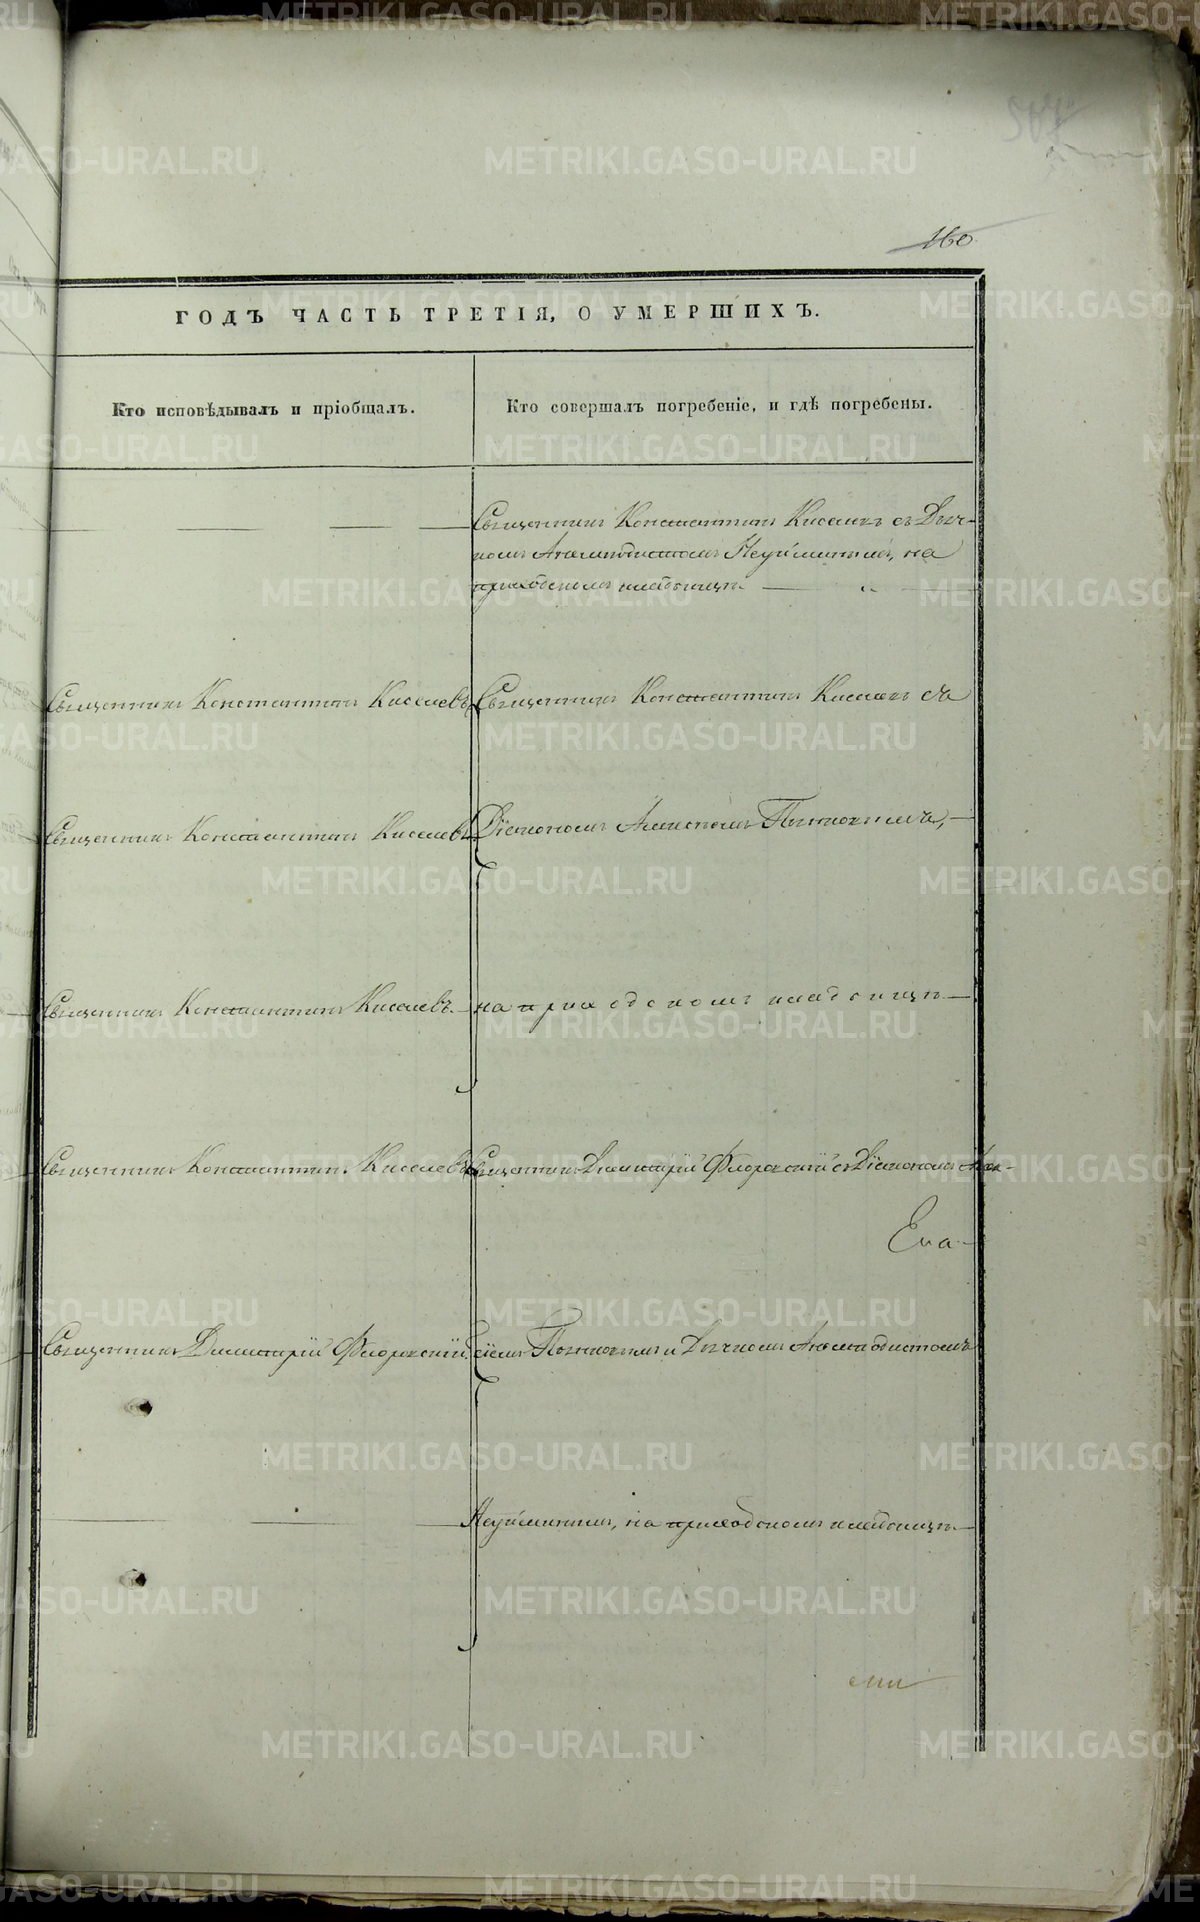 160
ГОДЪ ЧАСТЬ ТРЕТІЯ, О УМЕРШИХЪ.
Кто исповѣдывалъ и пріобщалъ.
Кто совершалъ погребеніе, и гдѣ погребены.
Священникъ Константинъ Киселевъ съ Дьяч-
комъ Неуйминымъ, на
приходскомъ кладбищѣ.
Священникъ Константинъ Киселевъ
Священникъ Константинъ Киселевъ съ
Священникъ Константинъ Киселевъ
Діакономъ
Священникъ Константинъ Киселевъ.
на приходскомъ кладбищѣ
Священникъ Константинъ Киселевъ
Священникъ Димитрій Флоровскій съ Діакономъ
Священникъ Димитрій Флоровскій
и Дьячкомъ
Неуйминымъ, на приходскомъ кладбищѣ
METRIKI.GASO-URAL.RU